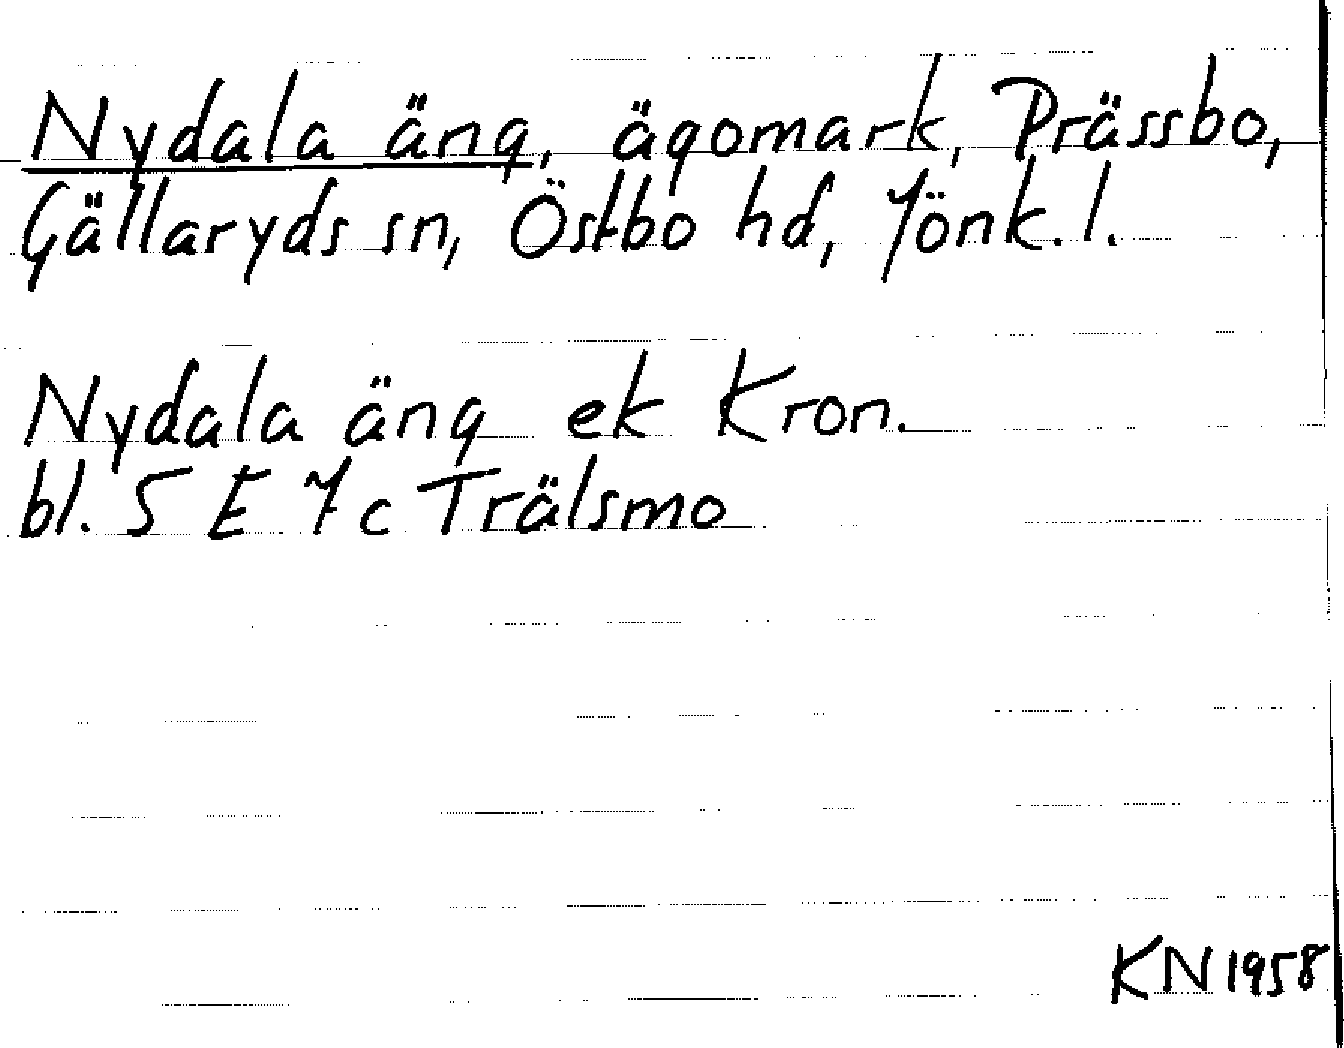 Nydala äng, ägomark, Prässbo,
Gällaryds sn, Östbo hd, Jönk. l.
Nydala äng ek Kron.
bl. 5 E 7 c Trälsmo
KN 1958